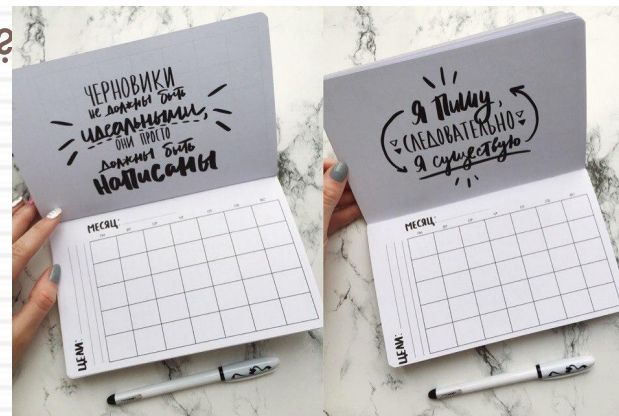 ЧЕРНОВИКИ
НЕ ДОЛЖНЫ БЫТЬ
идеальными,
ОНИ ПРОСТО
ДОЛЖНЫ БЫТЬ
НАПИСАНЫ
МЕСЯЦ:
ЦЕЛИ:
Я ПИШУ,
СЛЕДОВАТЕЛЬНО
Я существую
МЕСЯЦ:
ЦЕЛИ: